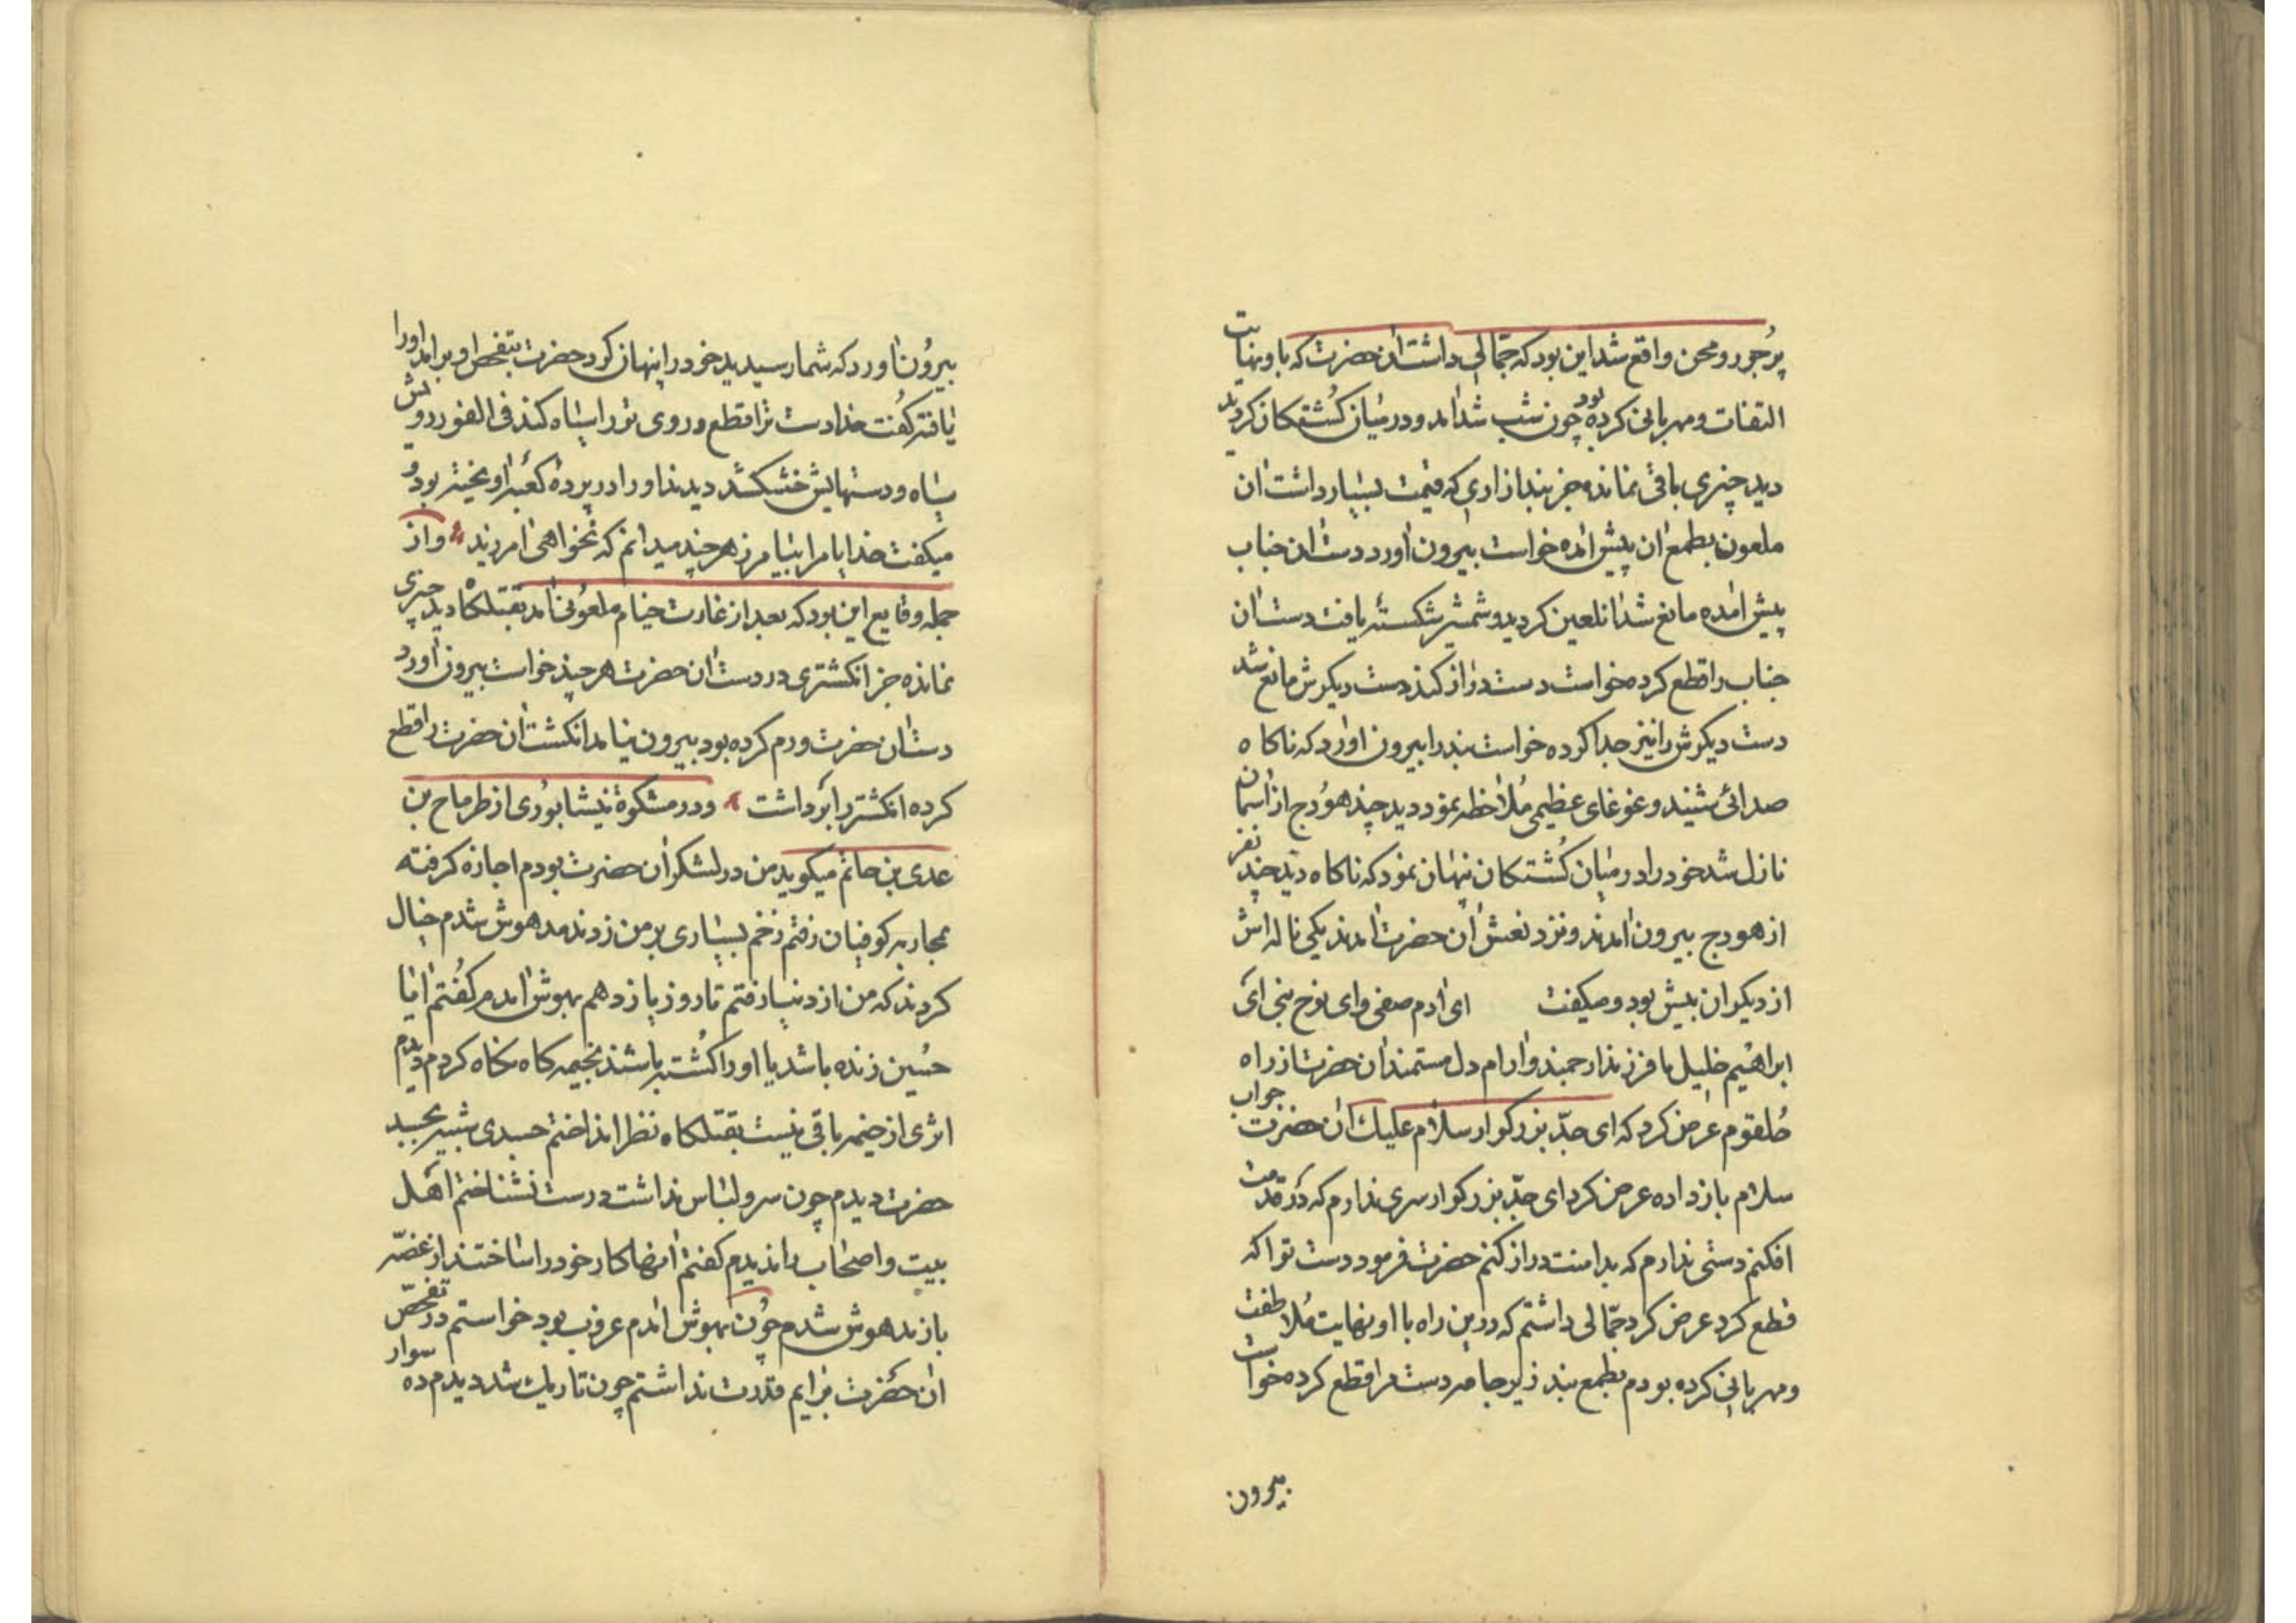 پرجور و محن واقع شد این بود که جمّالی داشت آن حضرت که باو نهایت
التفات و مهربانی کرده بود چون شب شد آمد و در میان کشتکان کردید
دید چیزی باقی نمانده جز بند ازاری که قیمت بسیار داشت آن
ملعون بطمع آن پیش آمده خواست بیرون آورد دست آن جناب
پیش آمده مانع شد آنلعین کردید و شمشیر شکستهٔ یافت دست آن
جناب را قطع کرده خواست دست دراز کند دست دیکرش مانع شد
دست دیکرش را نیز جدا کرده خواست بند را بیرون آورد که ناکاه
صدائی شنید و غوغای عظیمی ملاحظه نمود دید چند هودج از آسمان
نازل شد خود را در میان کشتکان پنهان نمود که ناکاه دید چند نفر
از هودج بیرون آمدند و نزد نعش آن حضرت آمدند یکی ناله اش
از دیکران بیش بود و میکفت ای آدم صفی و ای نوح نجی ای
ابراهیم خلیل با فرزند ارجمند و آرام دل مستمند آن حضرت از راه
حلقوم عرض کرد که ای جدّ بزرکوار سلام علیک آن حضرت جواب
سلام باز داده عرض کرد ای جدّ بزرکوار سری ندارم که در قدمت
افکنم دستی ندارم که بدامنت دراز کنم حضرت فرمود دست تو را که
قطع کرد عرض کرد جمّالی داشتم که در این راه با او نهایت ملاطفت
و مهربانی کرده بودم بطمع بند زیر جامه دست مرا قطع کرده خواست
بیرون
بیرون آورد که شما رسیدید خود را پنهان کرد حضرت بتفحص او برآمد او را
یافته کفت خدا دست ترا قطع و روی تو را سیاه کند فی الفور رویش
سیاه و دستهایش خشک شد دیدند او را در پرده کعبه آویخته بود و
میکفت خدایا مرا بیامرز هر چند میدانم که نخواهی آمرزید و از
جمله وقایع این بود که بعد از غارت خیام ملعونی آمد بقتلکاه دید چیزی
نمانده جز انکشتری در دست آن حضرت هر چند خواست بیرون آورد
دست آن حضرت ورم کرده بود بیرون نیامد انکشت آن حضرت را قطع
کرده انکشتر را برداشت و در مشکوة نیشابوری از طرماح بن
عدی بن حاتم میکوید من در لشکر آن حضرت بودم اجازه کرفته
بمحاربه کوفیان رفتم زخم بسیاری بر من زدند مدهوش شدم خیال
کردند که من از دنیا رفتم تا روز یازدهم بهوش آمدم کفتم آیا
حسین زنده باشد یا او را کشته باشند بخیمه کاه نکاه کردم دیدم
اثری از خیمه باقی نیست بقتلکاه نظر انداختم جسدی شبیه بجسد
حضرت دیدم چون سر و لباس نداشت درست نشناختم اهل
بیت و اصحاب را ندیدم کفتم اینها کار خود را ساختند از غصّه
باز مدهوش شدم چون بهوش آمدم غروب بود خواستم در تفحّص
آن حضرت برایم قدرت نداشتم چون تاریک شد دیدم ده سوار